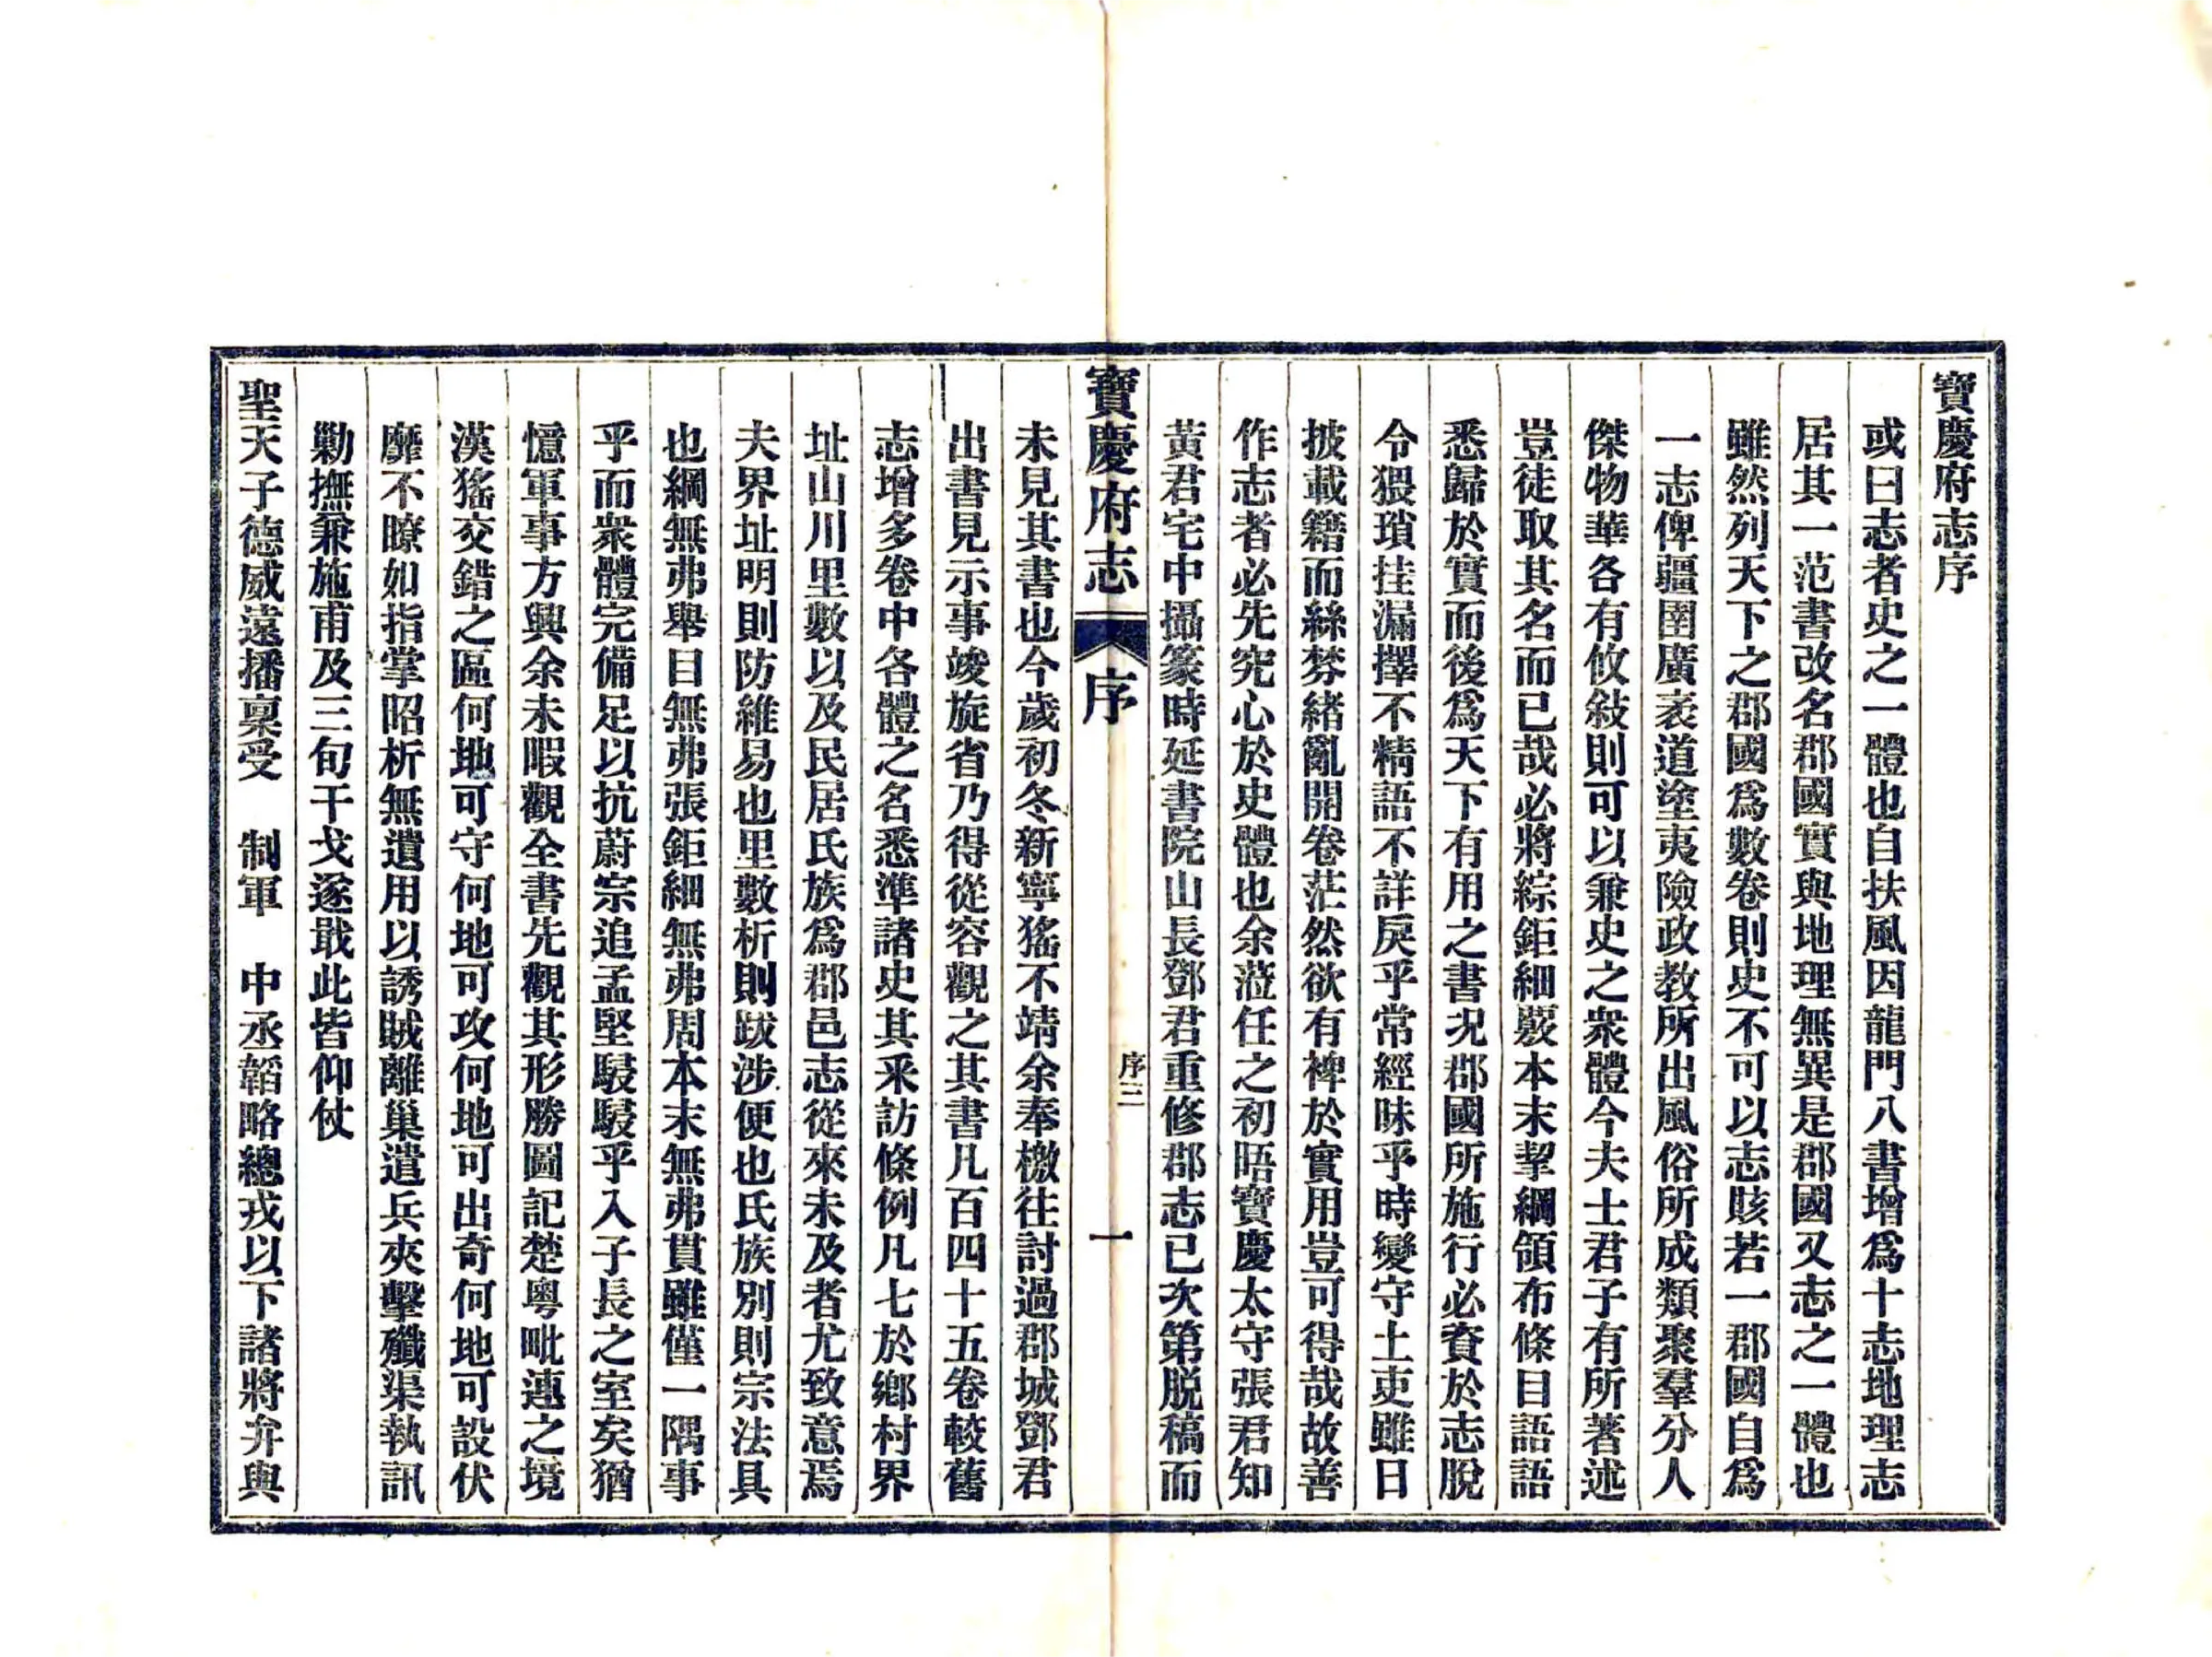 寶慶府志序
或曰志者史之一體也自扶風因龍門八書增爲十志地理志
居其一范書改名郡國實與地理無異是郡國又志之一體也
雖然列天下之郡國爲數卷則史不可以志賅若一郡國自爲
一志俾疆圉廣袤道塗夷險政教所出風俗所成類聚羣分人
傑物華各有攸敍則可以兼史之衆體今夫士君子有所著述
豈徒取其名而已哉必將綜鉅細覈本末挈綱領布條目語語
悉歸於實而後爲天下有用之書况郡國所施行必資於志脫
令猥瑣挂漏擇不精語不詳戾乎常經昧乎時變守土吏雖日
披載籍而絲棼緒亂開卷茫然欲有裨於實用豈可得哉故善
作志者必先究心於史體也余蒞任之初晤寶慶太守張君知
黃君宅中攝篆時延書院山長鄧君重修郡志已次第脫稿而
寶慶府志 序 序三 一
未見其書也今歲初冬新寧猺不靖余奉檄往討過郡城鄧君
出書見示事竣旋省乃得從容觀之其書凡百四十五卷較舊
志增多卷中各體之名悉準諸史其采訪條例凡七於鄉村界
址山川里數以及民居氏族爲郡邑志從來未及者尤致意焉
夫界址明則防維易也里數析則跋涉便也氏族別則宗法具
也綱無弗舉目無弗張鉅細無弗周本末無弗貫雖僅一隅事
乎而衆體完備足以抗蔚宗追孟堅駸駸乎入子長之室矣猶
憶軍事方興余未暇觀全書先觀其形勝圖記楚粵毗連之境
漢猺交錯之區何地可守何地可攻何地可出奇何地可設伏
靡不瞭如指掌昭析無遺用以誘賊離巢遣兵夾擊殲渠執訊
勦撫兼施甫及三旬干戈遂戢此皆仰仗
聖天子德威遠播稟受 制軍 中丞韜略總戎以下諸將弁與